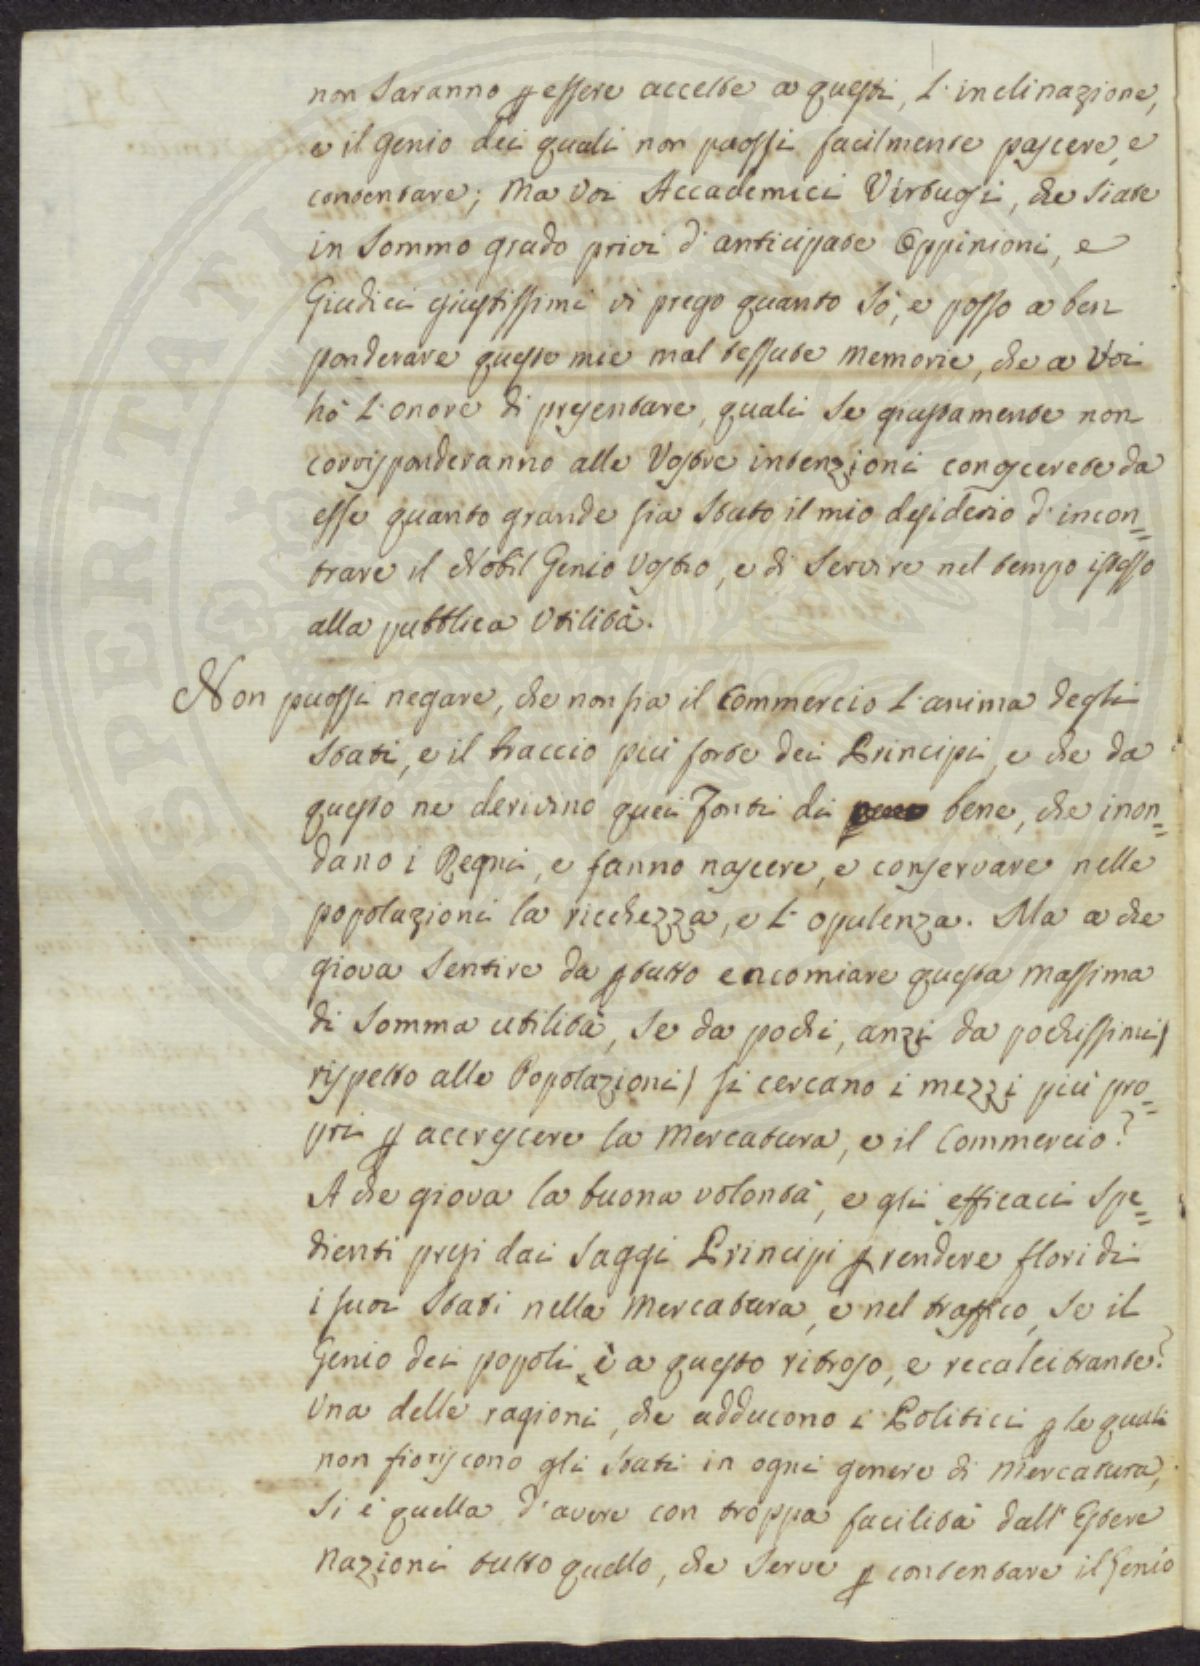 non saranno p essere accette a questi, L'inclinazione,
e il genio dei quali non puossi facilmente pascere, e
contentare; Ma Voi Accademici Virtuosi, che siate
in sommo grado privi d'anticipate Oppinioni, e
Giudici giustissimi vi prego quanto sò, e posso a ben
ponderare queste mie mal tessute memorie, che a Voi
hò L'onore di presentare, quali se giustamente non
corrisponderanno alle Vostre intenzioni conoscerete da
esse quanto grande sia stato il mio desiderio d'incon=
trare il Nobil Genio Vostro, e di servire nel tempo istesso
alla pubblica Utilità.
Non puossi negare, che non sia il Commercio L'anima degli
Stati, e il braccio più forte dei Principi, e che da
questo ne derivino quei Fonti di bene, che inon=
dano i Regni, e fanno nascere, e conservare nelle
popolazioni la ricchezza, e L'opulenza. Ma a che
giova sentire da p tutto encomiare questa Massima
di somma utilità, se da pochi, anzi da pochissimi)
rispetto alle Popolazioni) si cercano i mezzi più pro=
pri p accrescere la Mercatura, e il Commercio?
A che giova la buona volontà, e gli efficaci spe=
dienti presi dai saggi Principi p rendere floridi
i suoi Stati nella Mercatura, e nel traffico, se il
Genio dei popoli è a questo ritroso, e recalcitrante?
Una delle ragioni, che adducono i Politici p le quali
non fioriscono gli Stati in ogni genere di Mercatura,
si è quella d'avere con troppa facilità dall'Estere
Nazioni tutto quello, che serve p contentare il Genio
PROSPERITATI PUBLICAE